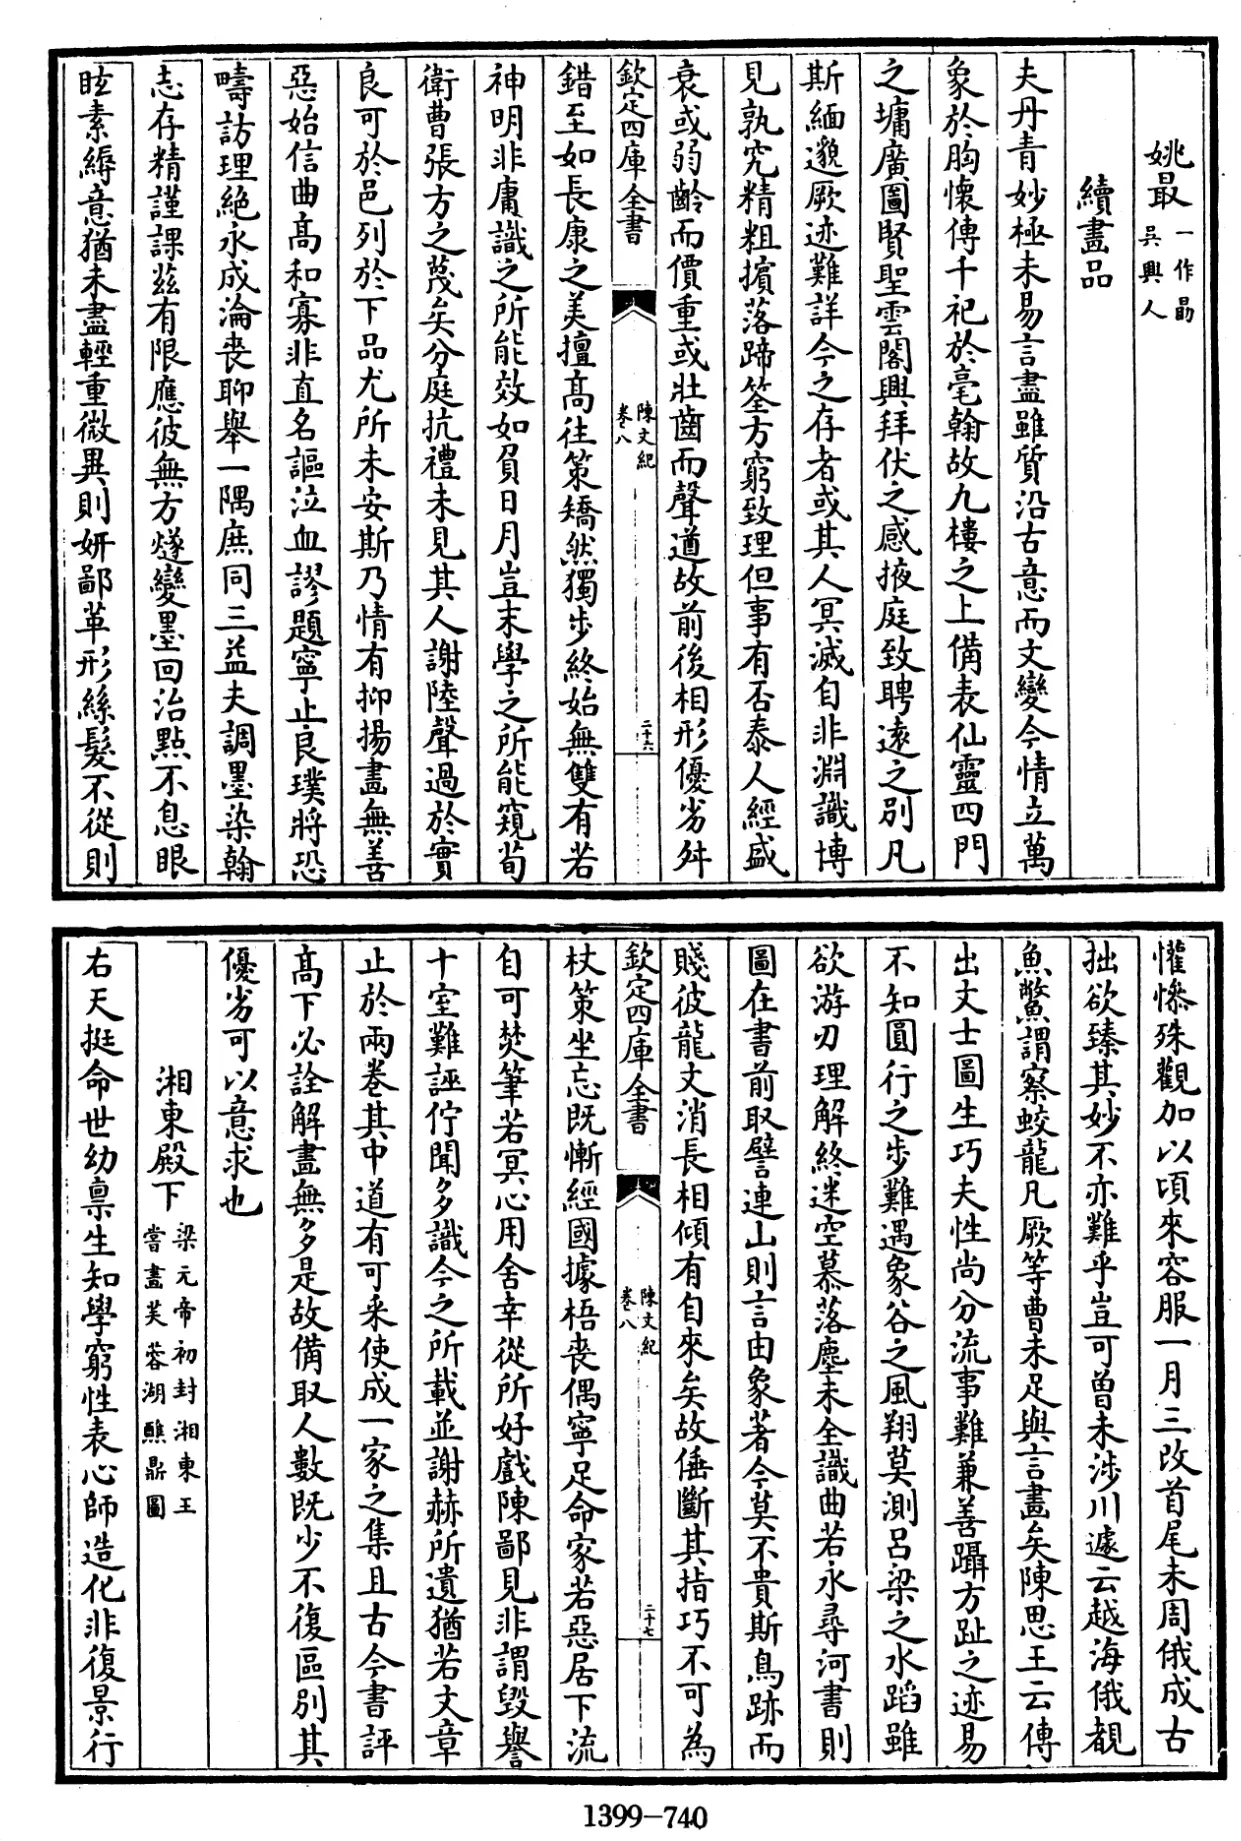 姚最一作勗吳興人
續畫品
夫丹青妙極未易言盡雖質沿古意而文變今情立萬
象於胸懷傳千祀於毫翰故九樓之上備表仙靈四門
之墉廣圖賢聖雲閣興拜伏之感掖庭致聘遠之別凡
斯緬邈厥迹難詳今之存者或其人冥滅自非淵識博
見孰究精粗擯落蹄筌方窮致理但事有否泰人經盛
衰或弱齡而價重或壯齒而聲遒故前後相形優劣舛
欽定四庫全書
陳文紀
卷八
二十六
錯至如長康之美擅高往策矯然獨步終始無雙有若
神明非庸識之所能效如負日月豈末學之所能窺荀
衛曹張方之蔑矣分庭抗禮未見其人謝陸聲過於實
良可於邑列於下品尤所未安斯乃情有抑揚畫無善
惡始信曲高和寡非直名謳泣血謬題寧止良璞將恐
疇訪理絕永成淪喪聊舉一隅庶同三益夫調墨染翰
志存精謹課茲有限應彼無方燧變墨回治點不息眼
眩素縟意猶未盡輕重微異則妍鄙革形絲髮不從則
懽慘殊觀加以頃來容服一月三改首尾未周俄成古
拙欲臻其妙不亦難乎豈可曾未涉川遽云越海俄覩
魚鱉謂察蛟龍凡厥等曹未足與言畫矣陳思王云傳
出文士圖生巧夫性尚分流事難兼善躡方趾之迹易
不知圓行之步難遇象谷之風翔莫測呂梁之水蹈雖
欲游刃理解終迷空慕落塵未全識曲若永尋河書則
圖在書前取譬連山則言由象著今莫不貴斯鳥跡而
賤彼龍文消長相傾有自來矣故倕斷其指巧不可為
欽定四庫全書
陳文紀
卷八
二十七
杖策坐忘既慚經國據梧喪偶寧足命家若惡居下流
自可焚筆若冥心用舍幸從所好戲陳鄙見非謂毀譽
十室難誣佇聞多識今之所載並謝赫所遺猶若文章
止於兩卷其中道有可采使成一家之集且古今書評
高下必詮解畫無多是故備取人數既少不復區別其
優劣可以意求也
湘東殿下梁元帝初封湘東王嘗畫芙蓉湖醮鼎圖
右天挺命世幼禀生知學窮性表心師造化非復景行
1399-740